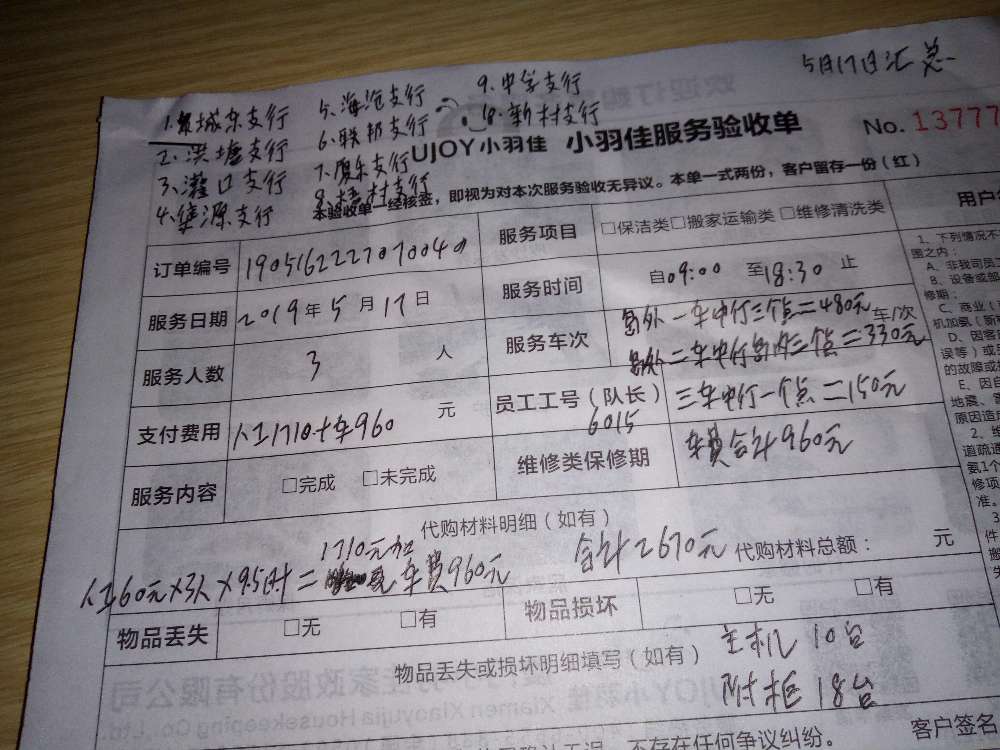 5月17日汇总
1.集城东支行
2.洪塘支行
3.灌口支行
4.集源支行
5.海沧支行
6.联邦支行
7.厦东支行
8.梧村支行
9.中学支行
新村支行
UJOY小羽佳 小羽佳服务验收单
No. 13777
本验收单一经核签，即视为对本次服务验收无异议。本单一式两份，客户留存一份（红）
订单编号
服务项目 □保洁类□搬家运输类□维修清洗类
服务日期 2019年5月17日
服务时间 自09:00 至18:30 止
服务人数 3 人
服务车次 岛外一车中行三个点=480元 车/次
岛外二车中行岛内三个点=330元
支付费用 人工1710+车960 元
员工工号（队长） 6015
三车中行一个点=150元
服务内容 □完成 □未完成
维修类保修期 车费合计960元
代购材料明细（如有）
1710元加
人工60元×3人×9.5时= 车费960元 合计2670元
代购材料总额： 元
物品丢失 □无 □有
物品损坏 □无 □有
物品丢失或损坏明细填写（如有）
主机10台
附柜18台
不存在任何争议纠纷。
客户签名
1、下列情况不
围之内：
A、非我司员工
B、设备或部
修期；
C、商业（
机加氨（新
D、因客
误等）或
的故障或
E、因自
地震、
原因造
2、维
道疏通
氨1个
修项
准。
3
件
搬
失